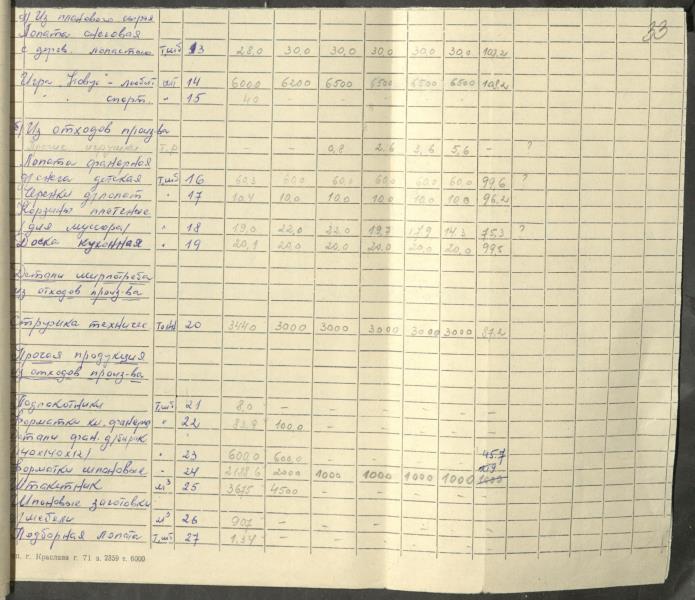 33
а) Из планового сырья
Лопата снеговая
с дерев. лопастью т.шт 13 28,0 30,0 30,0 30,0 30,0 30,0 107,2
Игра "Новус" - любит. шт 14 6000 6200 6500 6500 6500 6500 108,2
" спорт. " 15 40 - - - - -
б) Из отходов произ-ва
Прочие игрушки т.р - - 0,8 2,6 3,6 5,6 - ?
Лопата фанерная
д/снега детская т.шт 16 60,3 60,0 60,0 60,0 60,0 60,0 99,6 ?
Черенки д/лопат " 17 10,4 10,0 10,0 10,0 10,0 10,0 96,2
Корзины плетеные
/для мусора/ " 18 19,0 22,0 22,0 19,7 17,9 14,3 75,3 ?
Доска кухонная " 19 20,1 20,0 20,0 20,0 20,0 20,0 99,5
Детали ширпотреба
из отходов произ-ва
Стружка техничес 20 3440 3000 3000 3000 3000 3000 87,2
Прочая продукция
из отходов произ-ва
Подлокотники т.шт 21 8,0 - - - - -
Форматки кл. фанеры " 22 83,9 100,0 - - - -
Детали фан. д/бирок
140х140х12/ " 23 600,0 600,0 - - - - 45.7
Форматки шпоновые - 24 2188,6 2000 1000 1000 1000 1000
Штакетник м³ 25 3675 4500 - - - -
Шпоновые заготовки
/мебели м³ 26 907 - - - - -
Подборная лопата т.шт 27 1,34 - - - - -
п. г. Краслава г. 71 з. 2359 т. 6000